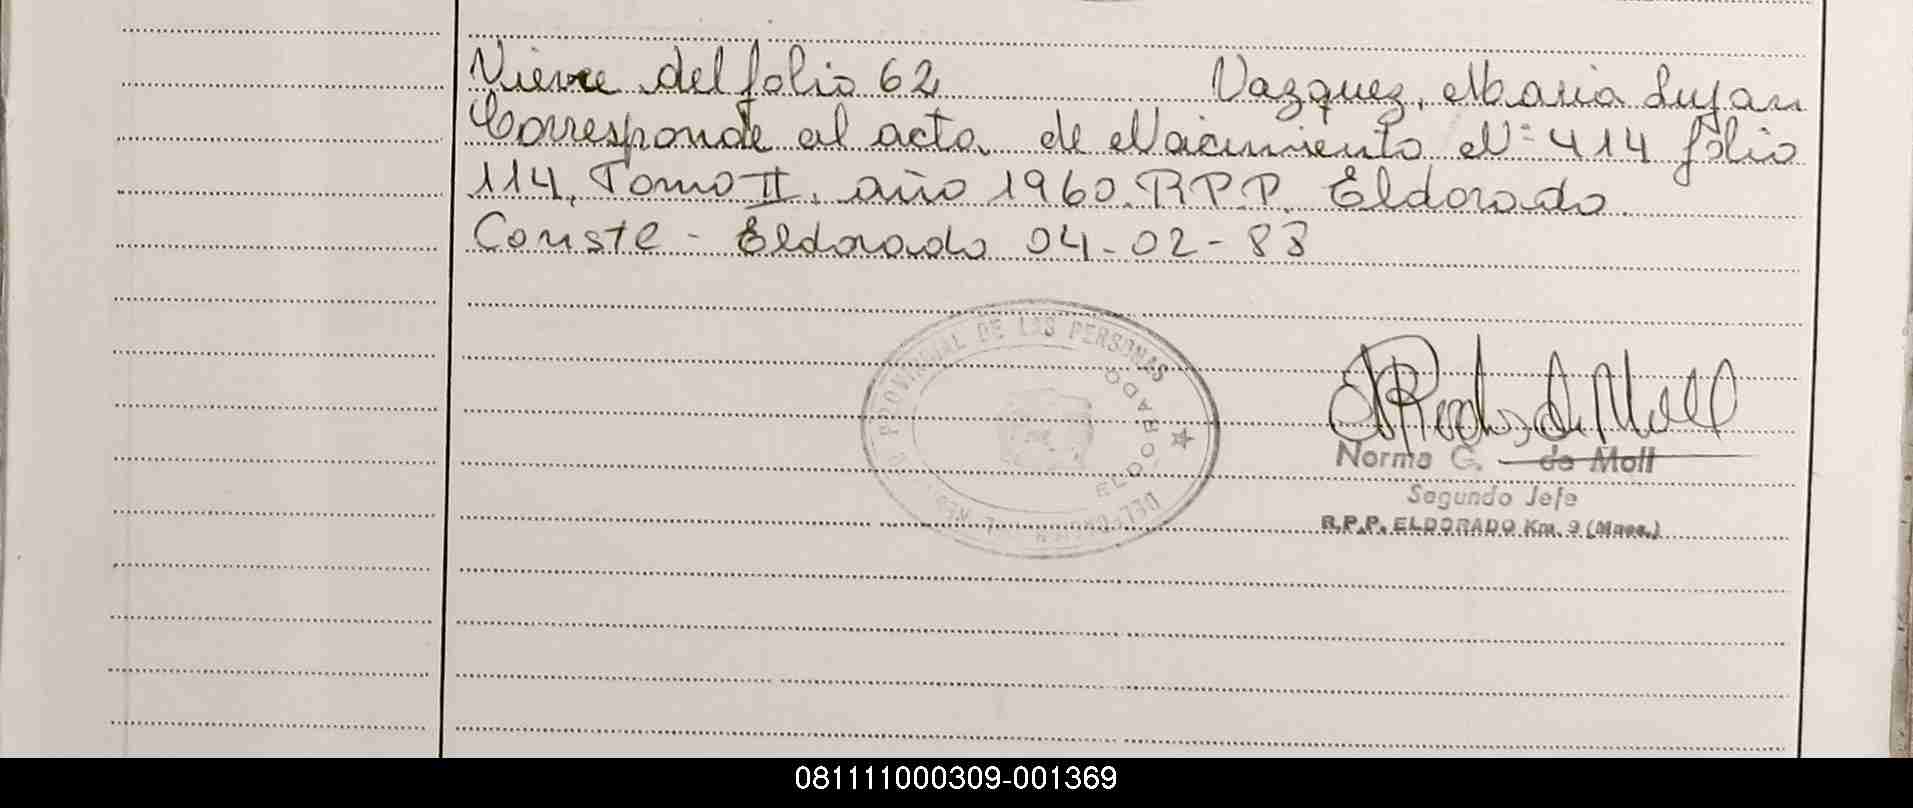 Viene del folio 62 Vazquez, Maria Lujan
Corresponde al acta de Nacimiento Nº 414 folio
114, Tomo II. año 1960. R.P.P. Eldorado.
Conste - Eldorado 04-02-83
PROVINCIAL DE LAS PERSONAS
ELDORADO
Norma C. de Moll
Segundo Jefe
R.P.P. ELDORADO Km. 9 (Mnes.)
081111000309-001369